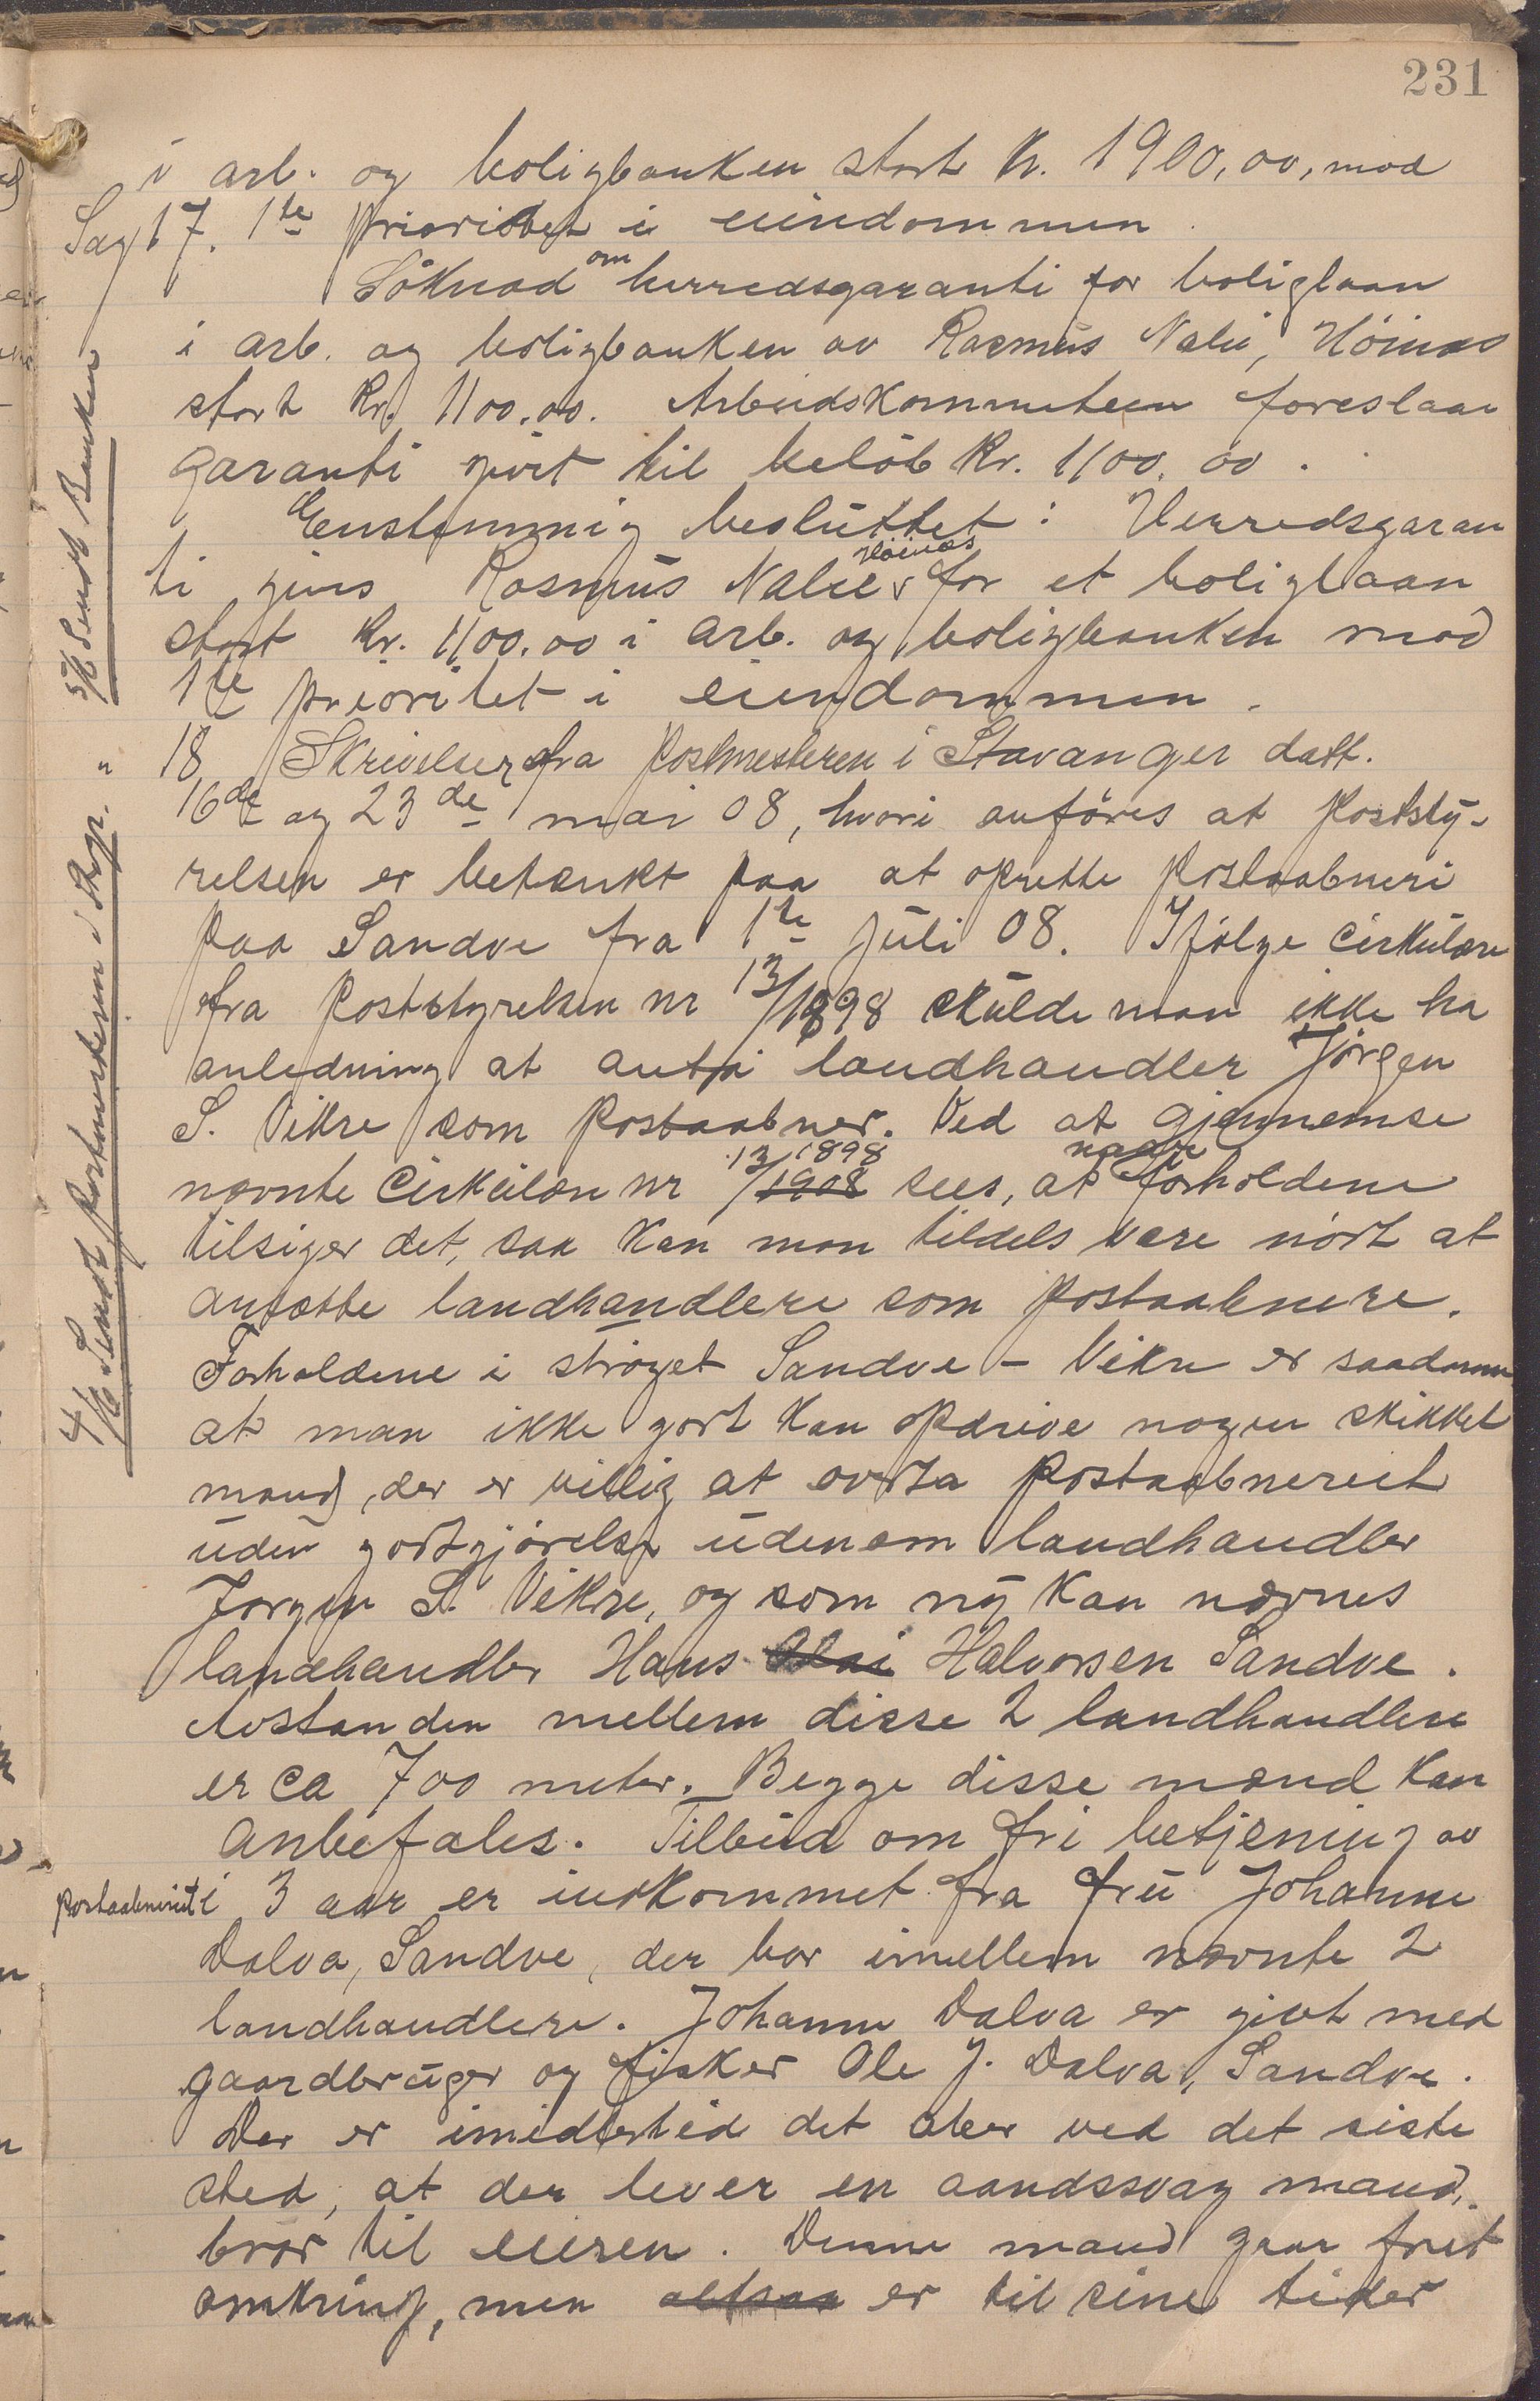 231
i arb. og boligbanken stort kr. 1900,00, mod
Sag 17. 1te prioritet i eiendommen.
Söknad om herredsgaranti for boliglaan
i arb. og boligbanken av Rasmus Nalie, Höines
stort kr. 1100.00. Arbeidskommiteen foreslaar
garanti givet til beløb kr. 1100.00.
Enstemmig besluttet: Herredsgaran
ti gives Rasmus Nalie Höines for et boliglaan
stort kr. 1100.00 i arb. og boligbanken mod
1te prioritet i eiendommen.
5/6 Sendt Banken
18 Skrivelser fra postmesteren i Stavanger datt.
16de og 23de mai 08, hvori anføres at poststy-
relsen er betænkt paa at oprette postaabneri
paa Sandve fra 1te juli 08. Ifølge cirkulære
fra poststyrelsen nr 13/1898 skulde man ikke ha
anledning at anta landhandler Jörgen
S. Vikre som postaabner. Ved at gjennemse
nævnte cirkulære nr 13/1908 1898 sees, at naar forholdene
tilsiger det, saa kan man tildels være nödt at
ansætte landhandlere som postaabnere.
Forholdene i strøget Sandve - Vikre er saadanne
at man ikke godt kan opdrive nogen skikket
mand, der er villig at overta postaabneriet
uden godtgjørelse udenom landhandler
Jørgen S. Vikre, og som ny kan nævnes
landhandler Hans Halvorsen Sandve.
Avstanden mellem disse 2 landhandlere
er ca 700 meter. Begge disse mænd kan
anbefales. Tilbud om fri betjening av
postaabneriet i 3 aar er indkommet fra fru Johanne
Dalva, Sandve, der bor imellem nævnte 2
landhandlere. Johanne Dalva er givt med
gaardbruger og fisker Ole J. Dalva, Sandve.
Der er imidlertid det aber ved det siste
sted, at der lever en aandssvag mand,
bror til eieren. Denne mand gaar frit
omkring, men altsaa er til sine tider
4/6 Sendt postmesteren i Stvgr. "